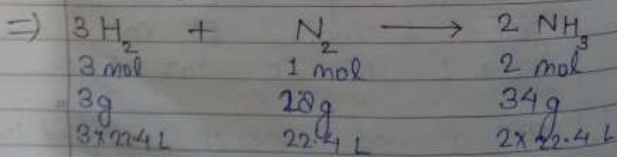 =) 3 H₂ + N₂ ⟶ 2 NH₃
3 mol 1 mol 2 mol
3g 28g 34 g
3x22.4 L 22.4 L 2x 22.4 L